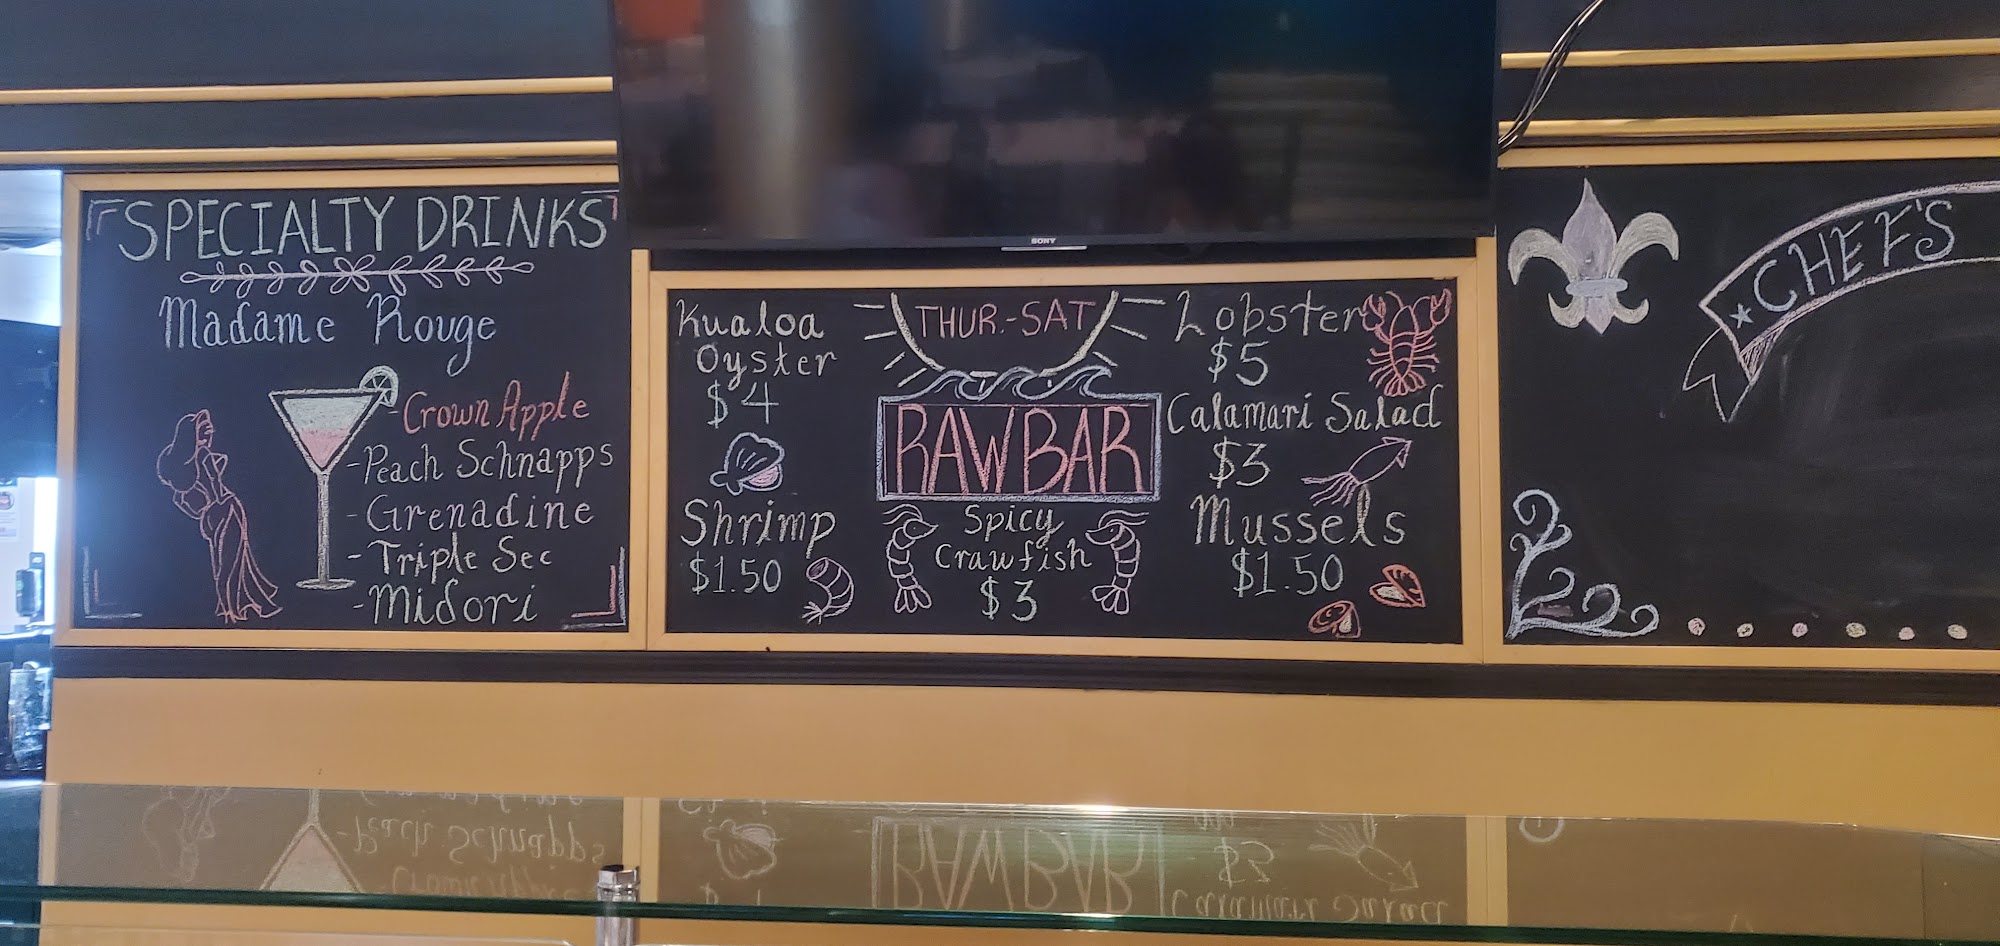 SONY
SPECIALTY DRINKS
Madame Rouge
-Crown Apple
-Peach Schnapps
-Grenadine
-Triple Sec
-Midori
Kualoa
Oyster
$4
Shrimp
$1.50
THUR.-SAT
RAW BAR
Spicy
Crawfish
$3
Lobster
$5
Calamari Salad
$3
Mussels
$1.50
CHEF'S